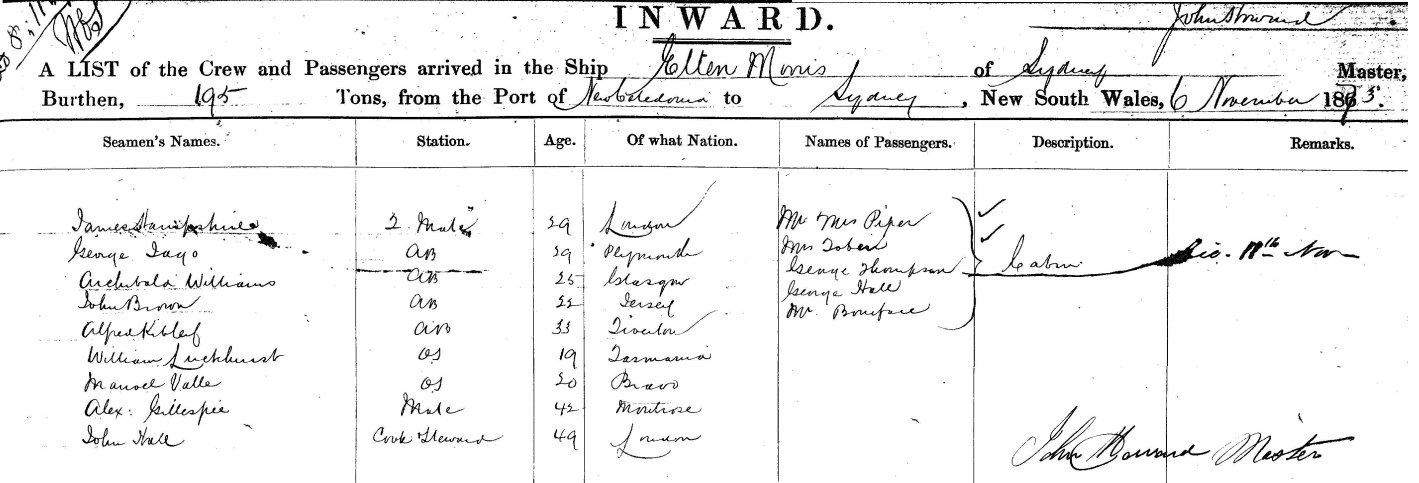 INWARD.
John Howard
A LIST of the Crew and Passengers arrived in the Ship Ellen Morris of Sydney Master,
Burthen, 195 Tons, from the Port of New Caledonia to Sydney, New South Wales, 6 November 1873.
Seamen's Names. Station. Age. Of what Nation. Names of Passengers. Description. Remarks.
James Hampshire 2 Mate 29 London Mr Mrs Piper
George 29 Plymouth Mrs
George AB Thompson Cabin 11th Nov
Archibald Williams AB 25 Glasgow George Hall
John Brown AB 22 Jersey Mr Boniface
Alfred AB 33 Tiverton
William Luckhurst OS 19 Tasmania
Manoel Valle OS 20 Bravo
Alex: Gillespie Mate 42 Montrose
John Hall Cook Steward 49 London
John Howard Master